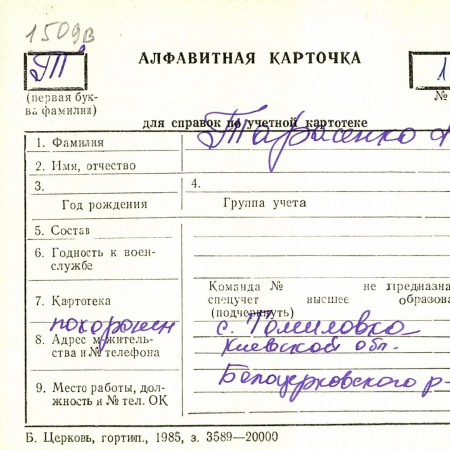 1509в
Т
АЛФАВИТНАЯ КАРТОЧКА
1
(первая бук-
ва фамилии)
№
для справок по учетной картотеке
Тарасенко
1. Фамилия
2. Имя, отчество
3.
4.
Год рождения
Группа учета
5. Состав
6. Годность к воен-
службе
Команда № не предназна
7. Картотека
спецучет высшее образова
(подчеркнуть)
похоронен
с. Томиловка
8. Адрес м.житель-
ства и № телефона
Киевской обл.
Белоцерковского р-
9. Место работы, дол-
жность и № тел. ОК
Б. Церковь, гортип., 1985, з. 3589—20000